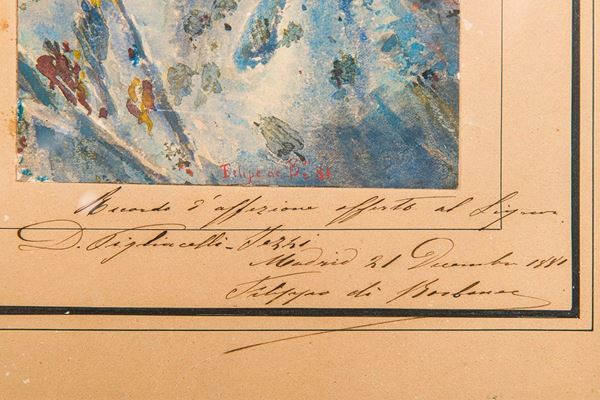 Felipe de Bⁿ
Ricordo d'affezione offerto al Signor
D. Tigliacelli-Sezzi
Madrid 21 Decembre 1881
Filippo di Borbone